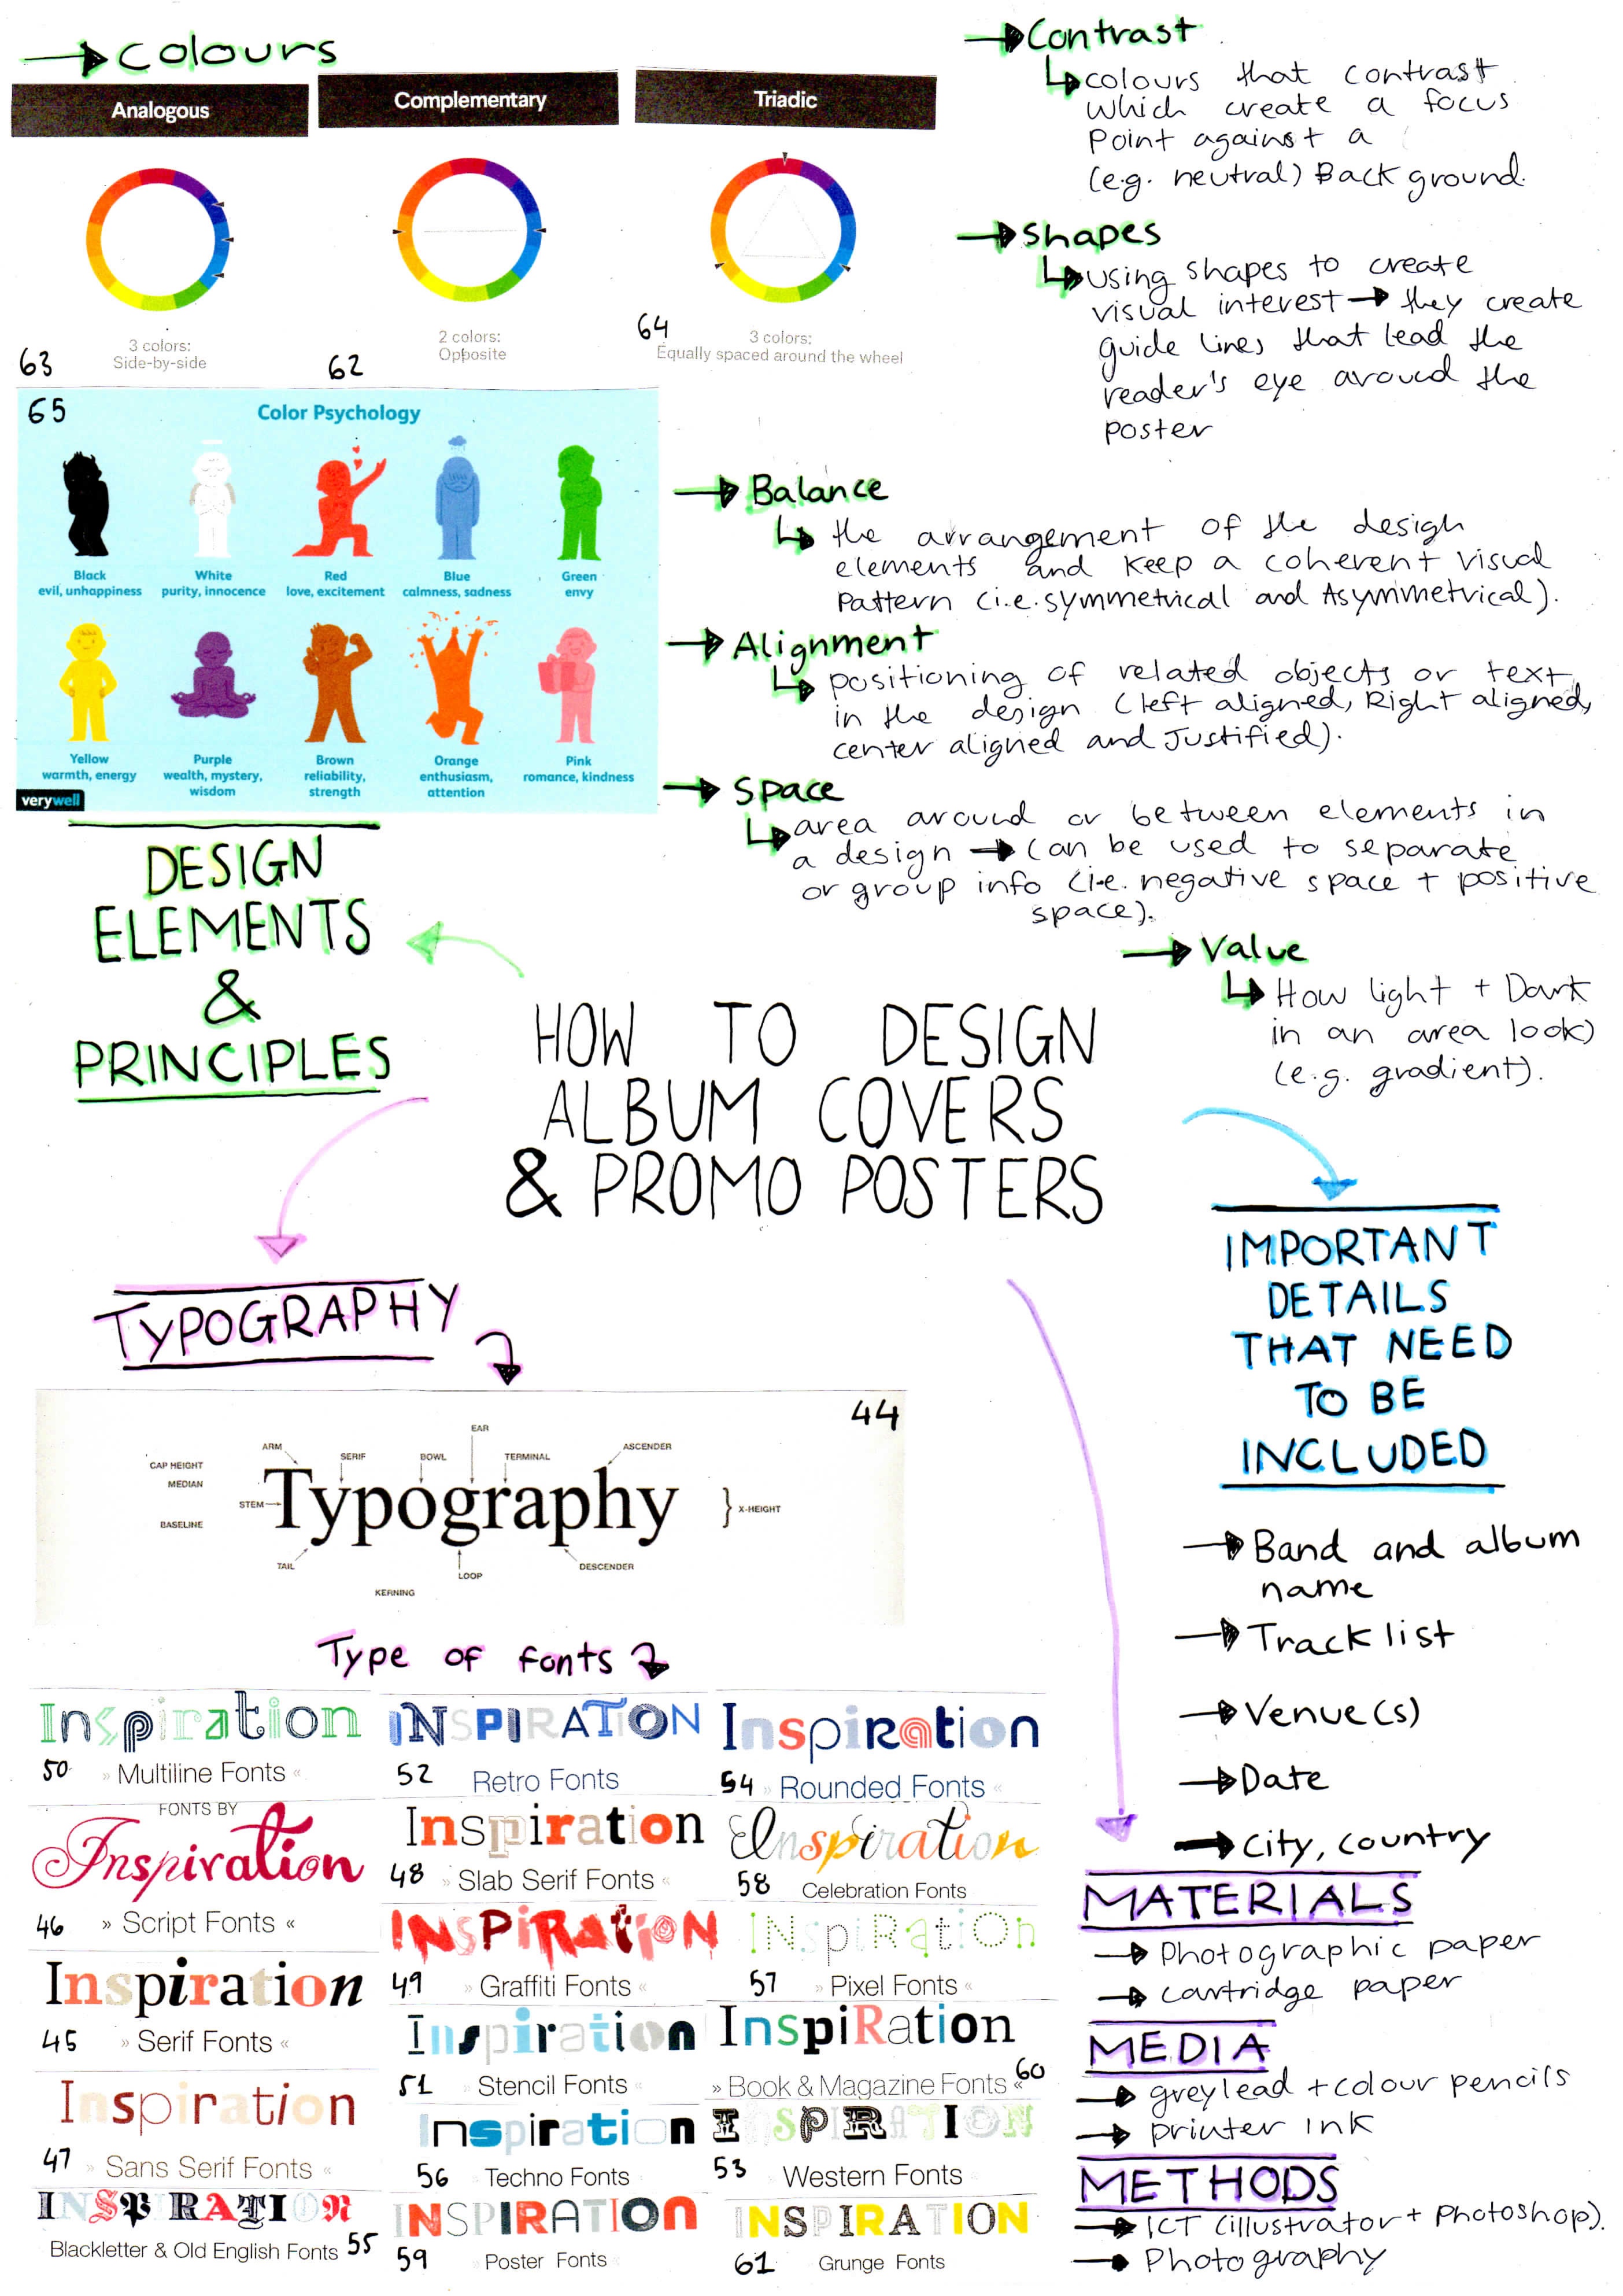 → Colours
Analogous
Complementary
Triadic
3 colors:
Side-by-side
63
2 colors:
Opposite
62
64
3 colors:
Equally spaced around the wheel
65
Color Psychology
Black
evil, unhappiness
White
purity, innocence
Red
love, excitement
Blue
calmness, sadness
Green
envy
Yellow
warmth, energy
Purple
wealth, mystery,
wisdom
Brown
reliability,
strength
Orange
enthusiasm,
attention
Pink
romance, kindness
verywell
→ Contrast
↳ colours that contrast
which create a focus
point against a
(e.g. neutral) Back ground.
→ Shapes
↳ using shapes to create
visual interest → they create
guide lines that lead the
reader's eye around the
poster
→ Balance
↳ the arrangement of the design
elements and keep a coherent visual
Pattern (i.e. symmetrical and Asymmetrical).
→ Alignment
↳ positioning of related objects or text
in the design (left aligned, Right aligned,
center aligned and Justified).
→ Space
↳ area around or between elements in
a design → can be used to separate
or group info (i.e. negative space + positive
space).
→ Value
↳ How light + Dark
in an area look)
(e.g. gradient).
DESIGN
ELEMENTS
&
PRINCIPLES
HOW TO DESIGN
ALBUM COVERS
& PROMO POSTERS
TYPOGRAPHY
44
EAR
ARM
SERIF
BOWL
TERMINAL
ASCENDER
CAP HEIGHT
MEDIAN
STEM
BASELINE
Typography
X-HEIGHT
TAIL
LOOP
DESCENDER
KERNING
Type of fonts
Inspiration
50 » Multiline Fonts «
INSPIRATION
52 Retro Fonts
Inspiration
54 » Rounded Fonts «
FONTS BY
Inspiration
46 » Script Fonts «
Inspiration
48 » Slab Serif Fonts «
Inspiration
58 Celebration Fonts
Inspiration
45 » Serif Fonts «
INSPiRatiON
49 » Graffiti Fonts «
INspiRatiOn
57 » Pixel Fonts «
Inspiration
51 Stencil Fonts
InspiRation
» Book & Magazine Fonts « 60
Inspiration
47 » Sans Serif Fonts «
Inspiration
56 Techno Fonts
INSPIRATION
53 Western Fonts
INSPIRATION
Blackletter & Old English Fonts 55
INSPIRATION
59 Poster Fonts
INSPIRATION
61 Grunge Fonts
IMPORTANT
DETAILS
THAT NEED
TO BE
INCLUDED
→ Band and album
name
→ Track list
→ Venue(s)
→ Date
→ City, country
MATERIALS
→ Photographic paper
→ cartridge paper
MEDIA
→ greylead + colour pencils
→ printer ink
METHODS
→ ICT (illustrator + Photoshop).
→ Photography